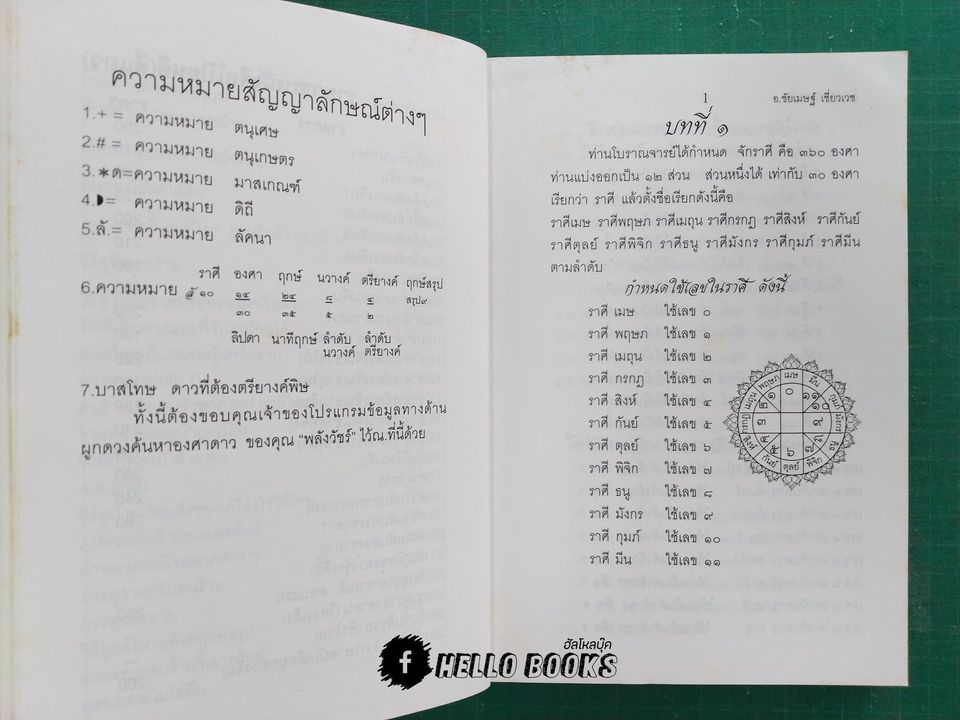 ความหมายสัญญาลักษณ์ต่างๆ
1.+ = ความหมาย ตนุเศษ
2.# = ความหมาย ตนุเกษตร
3.★ด=ความหมาย มาสเกณฑ์
4.◗= ความหมาย ดิถี
5.ลั.= ความหมาย ลัคนา
ราศี องศา ฤกษ์ นวางค์ ตรียางค์ ฤกษ์สรุป
6.ความหมาย ลั ๑๐ ๑๔ ๒๔ ๔ ๔ สรุป๙
๓๐ ๓๕ ๕ ๒
ลิปดา นาทีฤกษ์ ลำดับ ลำดับ
นวางค์ ตรียางค์
7.บาสโทษ ดาวที่ต้องตรียางค์พิษ
ทั้งนี้ต้องขอบคุณเจ้าของโปรแกรมข้อมูลทางด้าน
ผูกดวงค้นหาองศาดาว ของคุณ "พลังวัชร์" ไว้ณ.ที่นี้ด้วย
1 อ.ชัยเมษฐ์ เชี่ยวเวช
บทที่ ๑
ท่านโบราณจารย์ได้กำหนด จักราศี คือ ๓๖๐ องศา
ท่านแบ่งออกเป็น ๑๒ ส่วน ส่วนหนึ่งได้ เท่ากับ ๓๐ องศา
เรียกว่า ราศี แล้วตั้งชื่อเรียกดังนี้คือ
ราศีเมษ ราศีพฤษภ ราศีเมถุน ราศีกรกฎ ราศีสิงห์ ราศีกันย์
ราศีตุลย์ ราศีพิจิก ราศีธนู ราศีมังกร ราศีกุมภ์ ราศีมีน
ตามลำดับ
กำหนดใช้เลขในราศี ดังนี้
ราศี เมษ ใช้เลข ๐
ราศี พฤษภ ใช้เลข ๑
ราศี เมถุน ใช้เลข ๒
ราศี กรกฎ ใช้เลข ๓
ราศี สิงห์ ใช้เลข ๔
ราศี กันย์ ใช้เลข ๕
ราศี ตุลย์ ใช้เลข ๖
ราศี พิจิก ใช้เลข ๗
ราศี ธนู ใช้เลข ๘
ราศี มังกร ใช้เลข ๙
ราศี กุมภ์ ใช้เลข ๑๐
ราศี มีน ใช้เลข ๑๑
พฤษภ เมษ มีน
เมถุน ๑ ๐ ๑๑ กุมภ์
๒ ๑๐
กรกฎ ๓ ๙ มังกร
๔ ๘
สิงห์ ๕ ๖ ๗ ธนู
กันย์ ตุลย์ พิจิก
ฮัลโหลบุ๊ค
f HELLO BOOKS